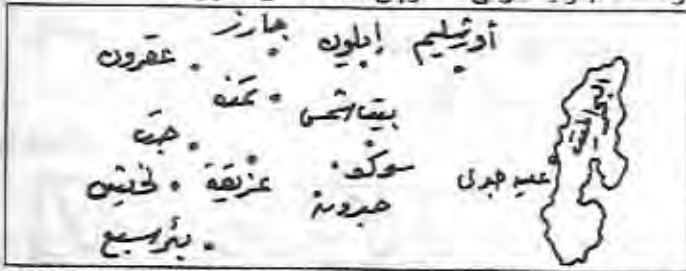 أورشليم إيلون جازر
عقرون
تمنه
بيت شمس
جت
سوكو
عزيقة
لخيش
حبرون
عين جدى
البحر الميت
بئر سبع